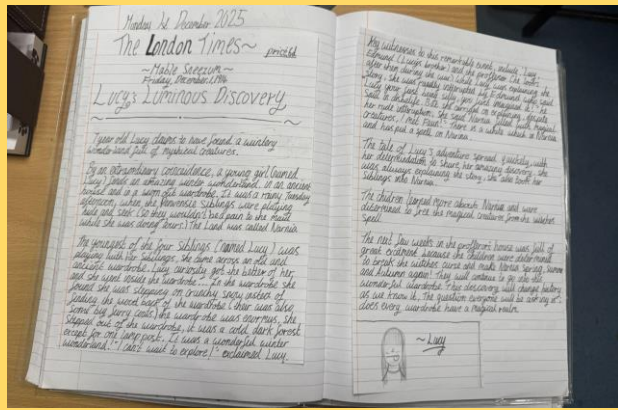 Monday 1st December 2025
The London Times~
price 6d.
~Mable Sneezum~
Friday, December, 1, 1946
Lucy's Luminous Discovery
7 year old Lucy claims to have found a wintery
wonderland full of mystical creatures.
By an extraordinary coincidence, a young girl (named
Lucy) finds an amazing winter wonderland in an ancient
house and in a worn out wardrobe. It was a rainy Tuesday
afternoon, when the Pevensie siblings were playing
hide and seek (so they wouldn't be a pain to the maid
while she was doing tours). The Land was called Narnia.
The youngest of the four siblings (named Lucy) was
playing with her siblings, she came across an old and
ancient wardrobe. Lucy curiosity got the better of her,
and she went inside the wardrobe.... In the wardrobe she
found she was stepping on crunchy snow instead of
finding the wood back of the wardrobe (ther was also
some big furry coats) the wardrobe was enormous. She
stepped out of the wardrobe, it was a cold dark forest
except for one Lamp post. It was a wonderful winter
wonderland! "I can't wait to explore!" exclaimed Lucy.
Key witnesses to this remarkable event, include Lucy,
Edmund (Lucy's brother) and the proffesor (he looks
after them during the war). While Lucy was explaining the
story, she was rudely interrupted by Edmund who said
"Lucy your just lying why you just imagined it." he
said in disbelife. But she carried on explaining, despite
her rude interruption. She said "Narnia filled with magical
creatures, I met Faun! There is a white witch in Narnia
and has put a spell on Narnia.
The tale of Lucy's adventure spread quickly, with
her determination to share her amazing discovery, she
was always explaining the story. She also took her
siblings into Narnia.
The children learned more about Narnia and were
determined to free the magical creatures from the witches
spell.
The next few weeks in the proffesors house was full of
great excitment because the children were determined
to break the witches curse and make Narnia Spring, Summer
and Autumn again! They will continue to go into the
wonderful wardrobe. This discovery will change history
as we know it. The question everyone will be asking is
does every wardrobe have a magical realm.
~Lucy